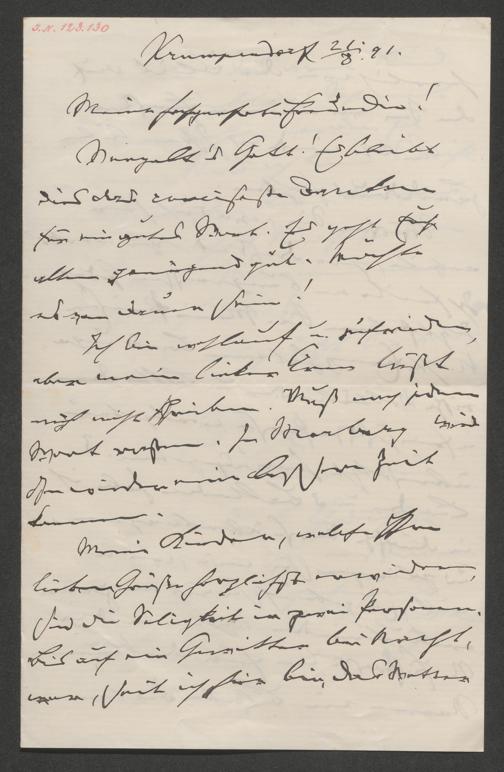 I.N. 123.130
Krumpendorf 26/8. 91.
Meine hochverehrte Freundin!
Vergelt's Gott! Es bleibt
dies das einfachste Danken
für ein gutes Wort. Es geht Euch
allen genügend gut. Möchte
es von Dauer sein!
Ich bin wohlauf u. zufrieden,
aber mein lieber Arm läßt
mich nicht schreiben. Muß nach jedem
Wort rasten. In Marburg wird
schon wieder eine bessere Zeit
kommen.
Meine Kinder, welche Ihre
lieben Grüße herzlichst erwidern,
sind die Seligkeit in zwei Personen.
Bis auf ein Gewitter bei Nacht,
war, seit ich hier bin, das Wetter